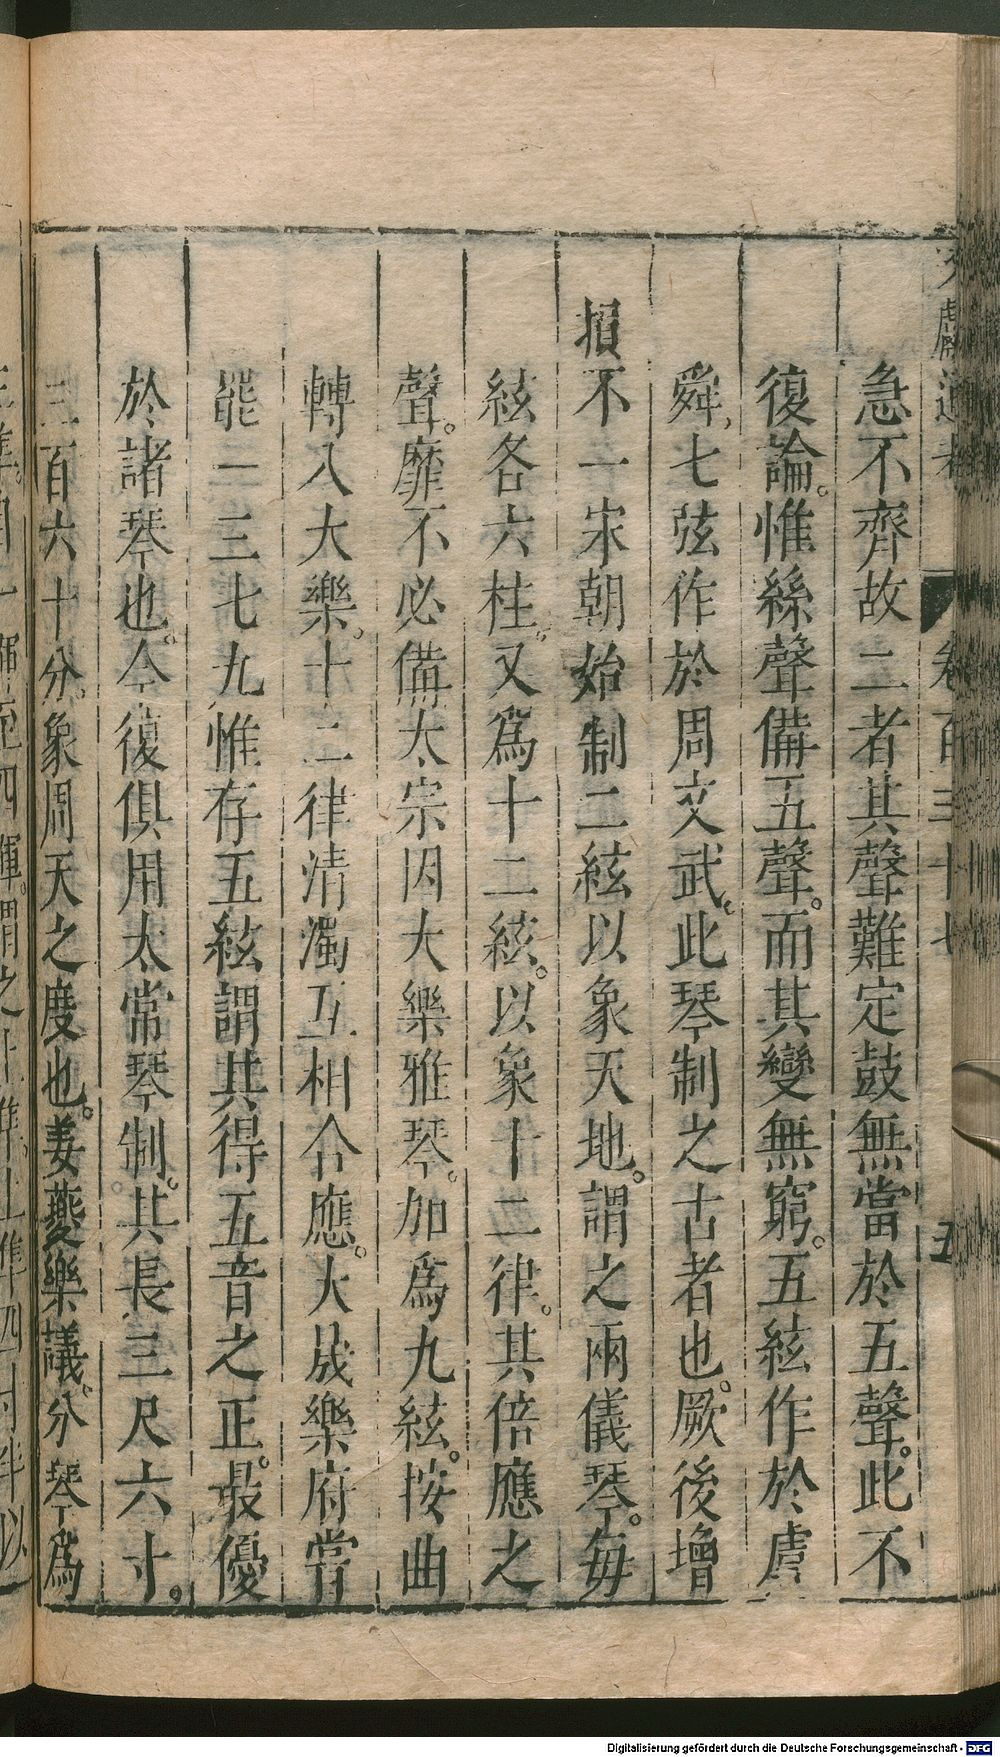 急不齊故二者其聲難定鼓無當於五聲。此不
復論。惟絲聲備五聲。而其變無窮。五絃作於虞
舜。七弦作於周文武。此琴制之古者也。厥後增
損不一宋朝始制二絃以象天地。謂之兩儀琴。每
絃各六柱。又爲十二絃。以象十二律。其倍應之
聲。靡不必備。太宗因大樂雅琴。加爲九絃。按曲
轉入大樂。十二律清濁互相合應。大晟樂府嘗
罷一三七九惟存五絃謂其得五音之正。最優
於諸琴也。今復俱用太常琴制。其長三尺六寸。
三百六十分。象周天之度也。姜夔樂議。分琴爲
文獻通考
卷百三十七
五
Digitalisierung gefördert durch die Deutsche Forschungsgemeinschaft - DFG